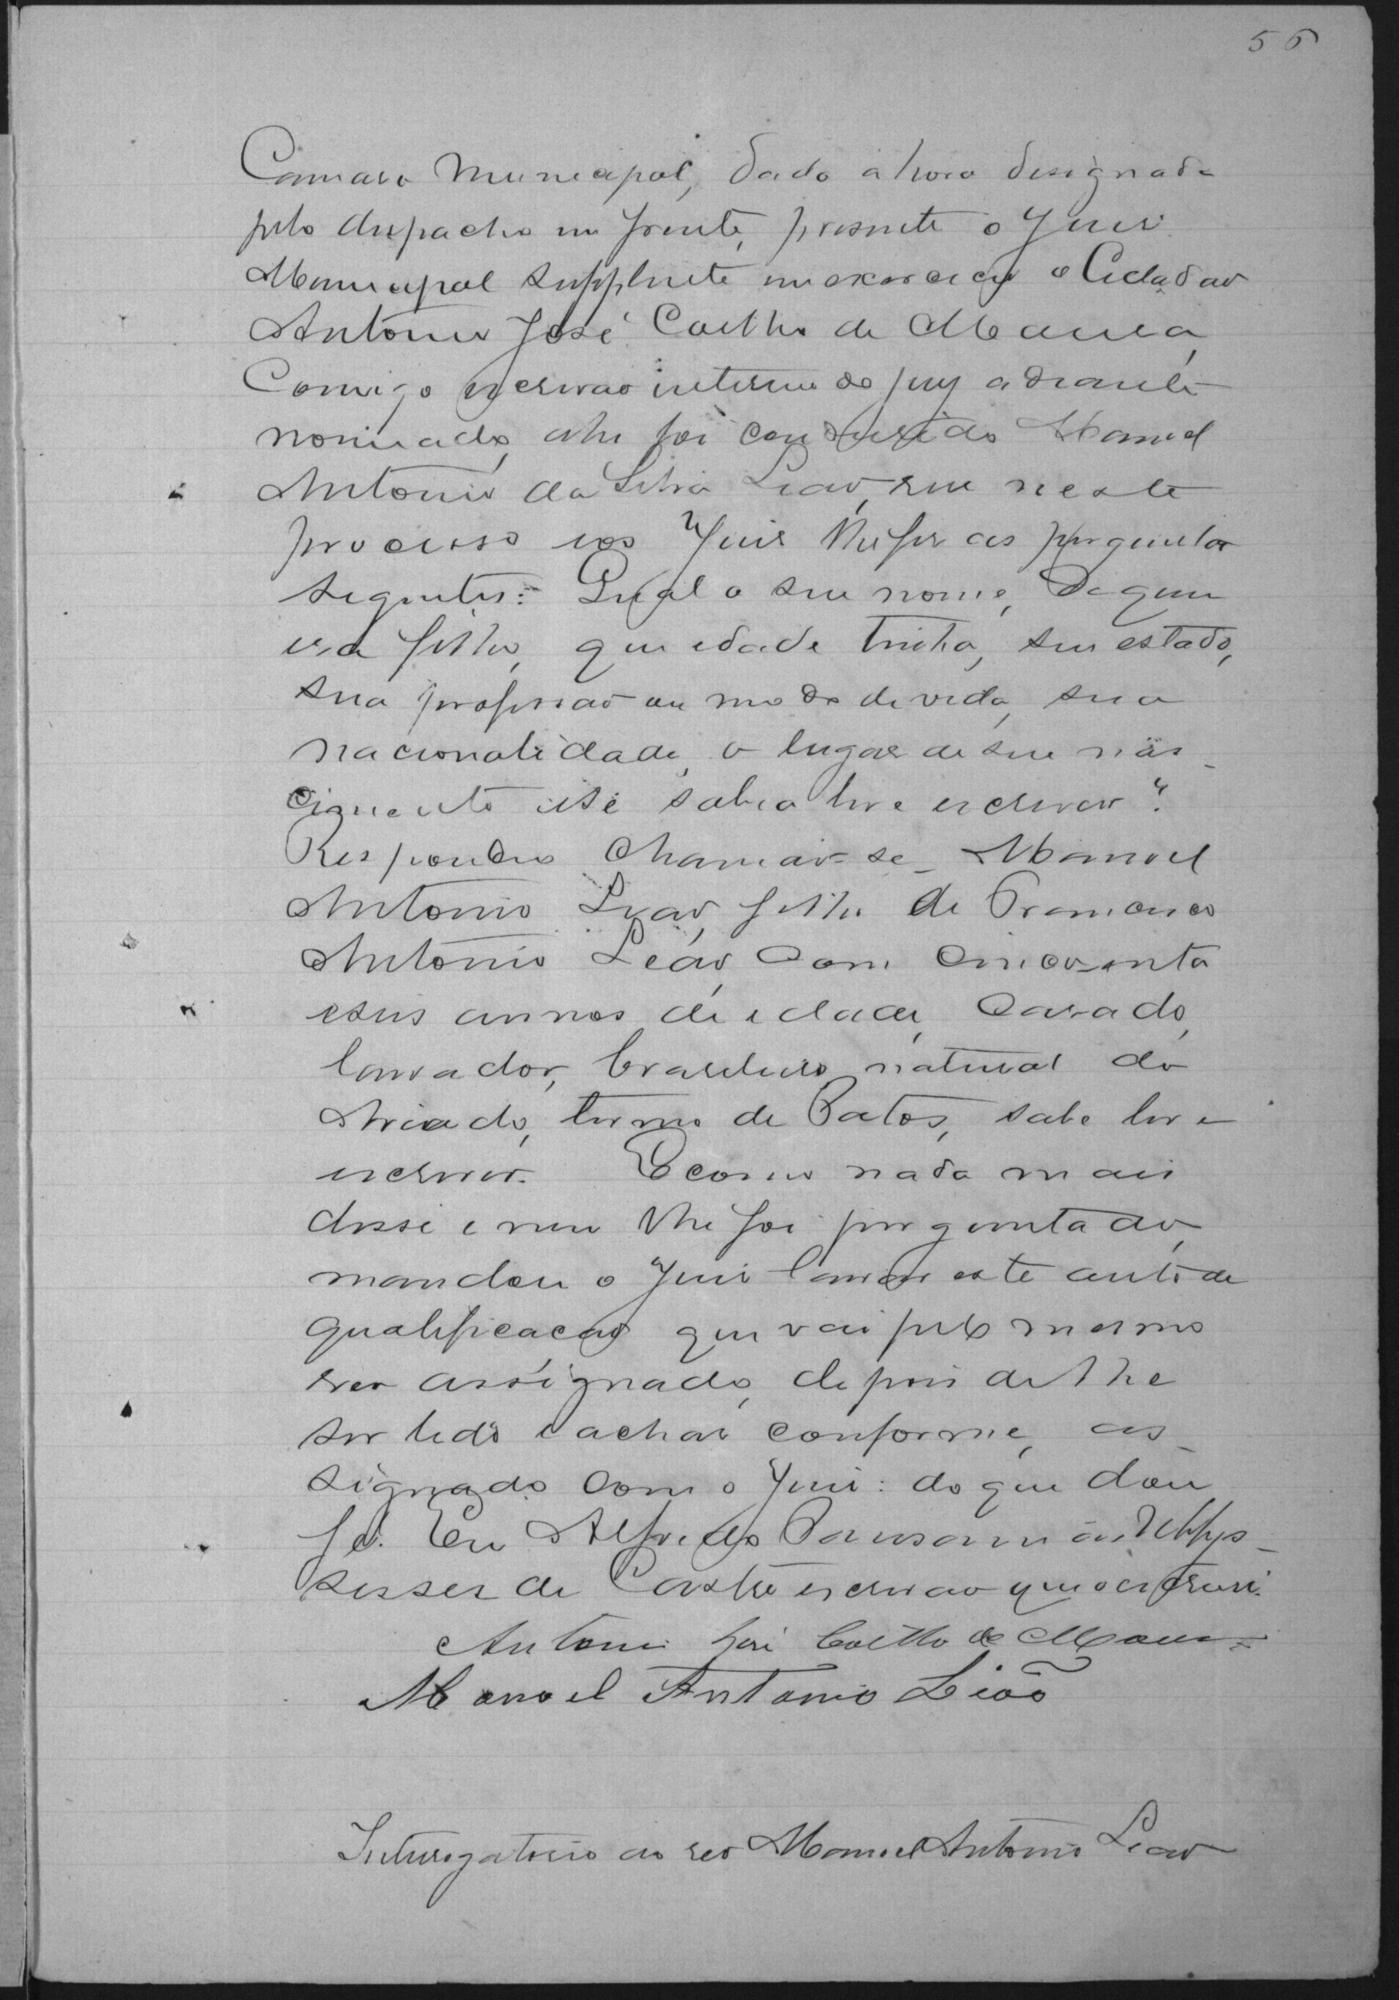 56
Camara Municipal, dado a hora designada
pelo despacho em frente, presente o Juiz
Municipal supplente em exercicio o Cidadão
Antonio José Coelho de Moura,
Comigo escrivão interino do juiz adiante
nomeado, ahi foi conduzido Manoel
Antonio da Silva Leão, reu neste
processo e o Juiz lhe fez as perguntas
seguintes: Qual o seu nome, de quem
era filho, que edade tinha, seu estado,
sua profissão ou modo de vida, sua
nacionalidade, o lugar de seu nas-
cimento e se sabia ler e escrever?
Respondeu chamar-se Manoel
Antonio Leão, filho de Francisco
Antonio Leão, com cincoenta
e seis annos de edade, casado,
lavrador, brasileiro, natural do
Areado, termo de Patos, sabe ler e
escrever. E como nada mais
disse e nem lhe foi perguntado,
mandou o Juiz lavrar este auto de
qualificação que vai pelo mesmo
reo assignado, depois de lhe
ser lido e achar conforme, as-
signado com o Juiz: do que dou
fé. Eu Alfredo
de Castro escrivão que o escrevi.
Antonio José Coelho de Moura
Manoel Antonio Leão
Interrogatorio ao reo Manoel Antonio Leão